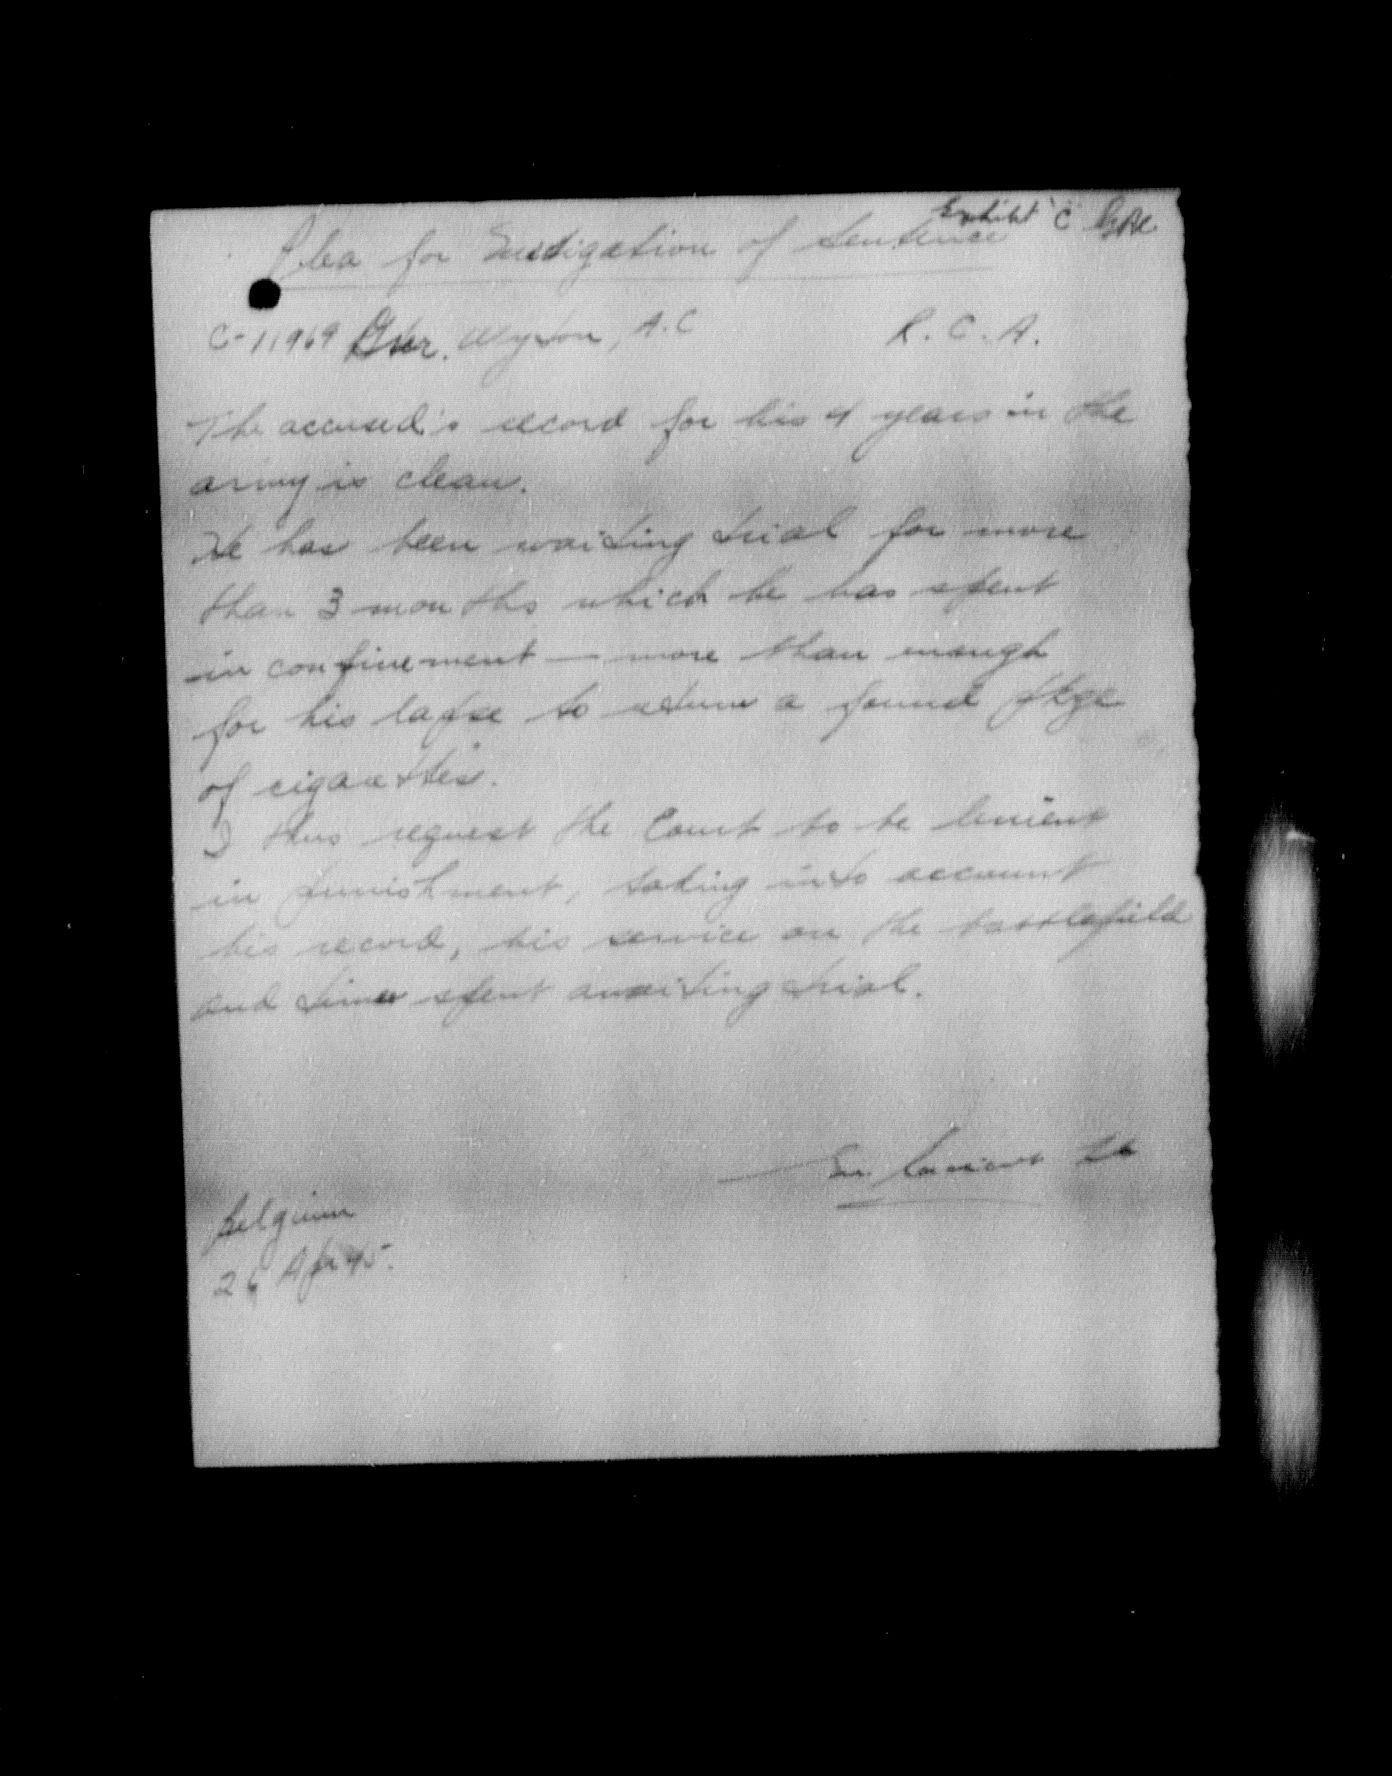 Exhibit "C"
Plea for Mitigation of Sentence
C-11969 Gnr. A.C R.C.A.
The accused's record for his 4 years in the
army is clean.
He has been waiting trial for more
than 3 months which he has spent
in confinement — more than enough
for his lapse to return a found pkge
of cigarettes.
I thus request the Court to be lenient
in punishment, taking into account
his record, his service on the battlefield
and time spent awaiting trial.
Lt
Belgium
26 Apr 45.